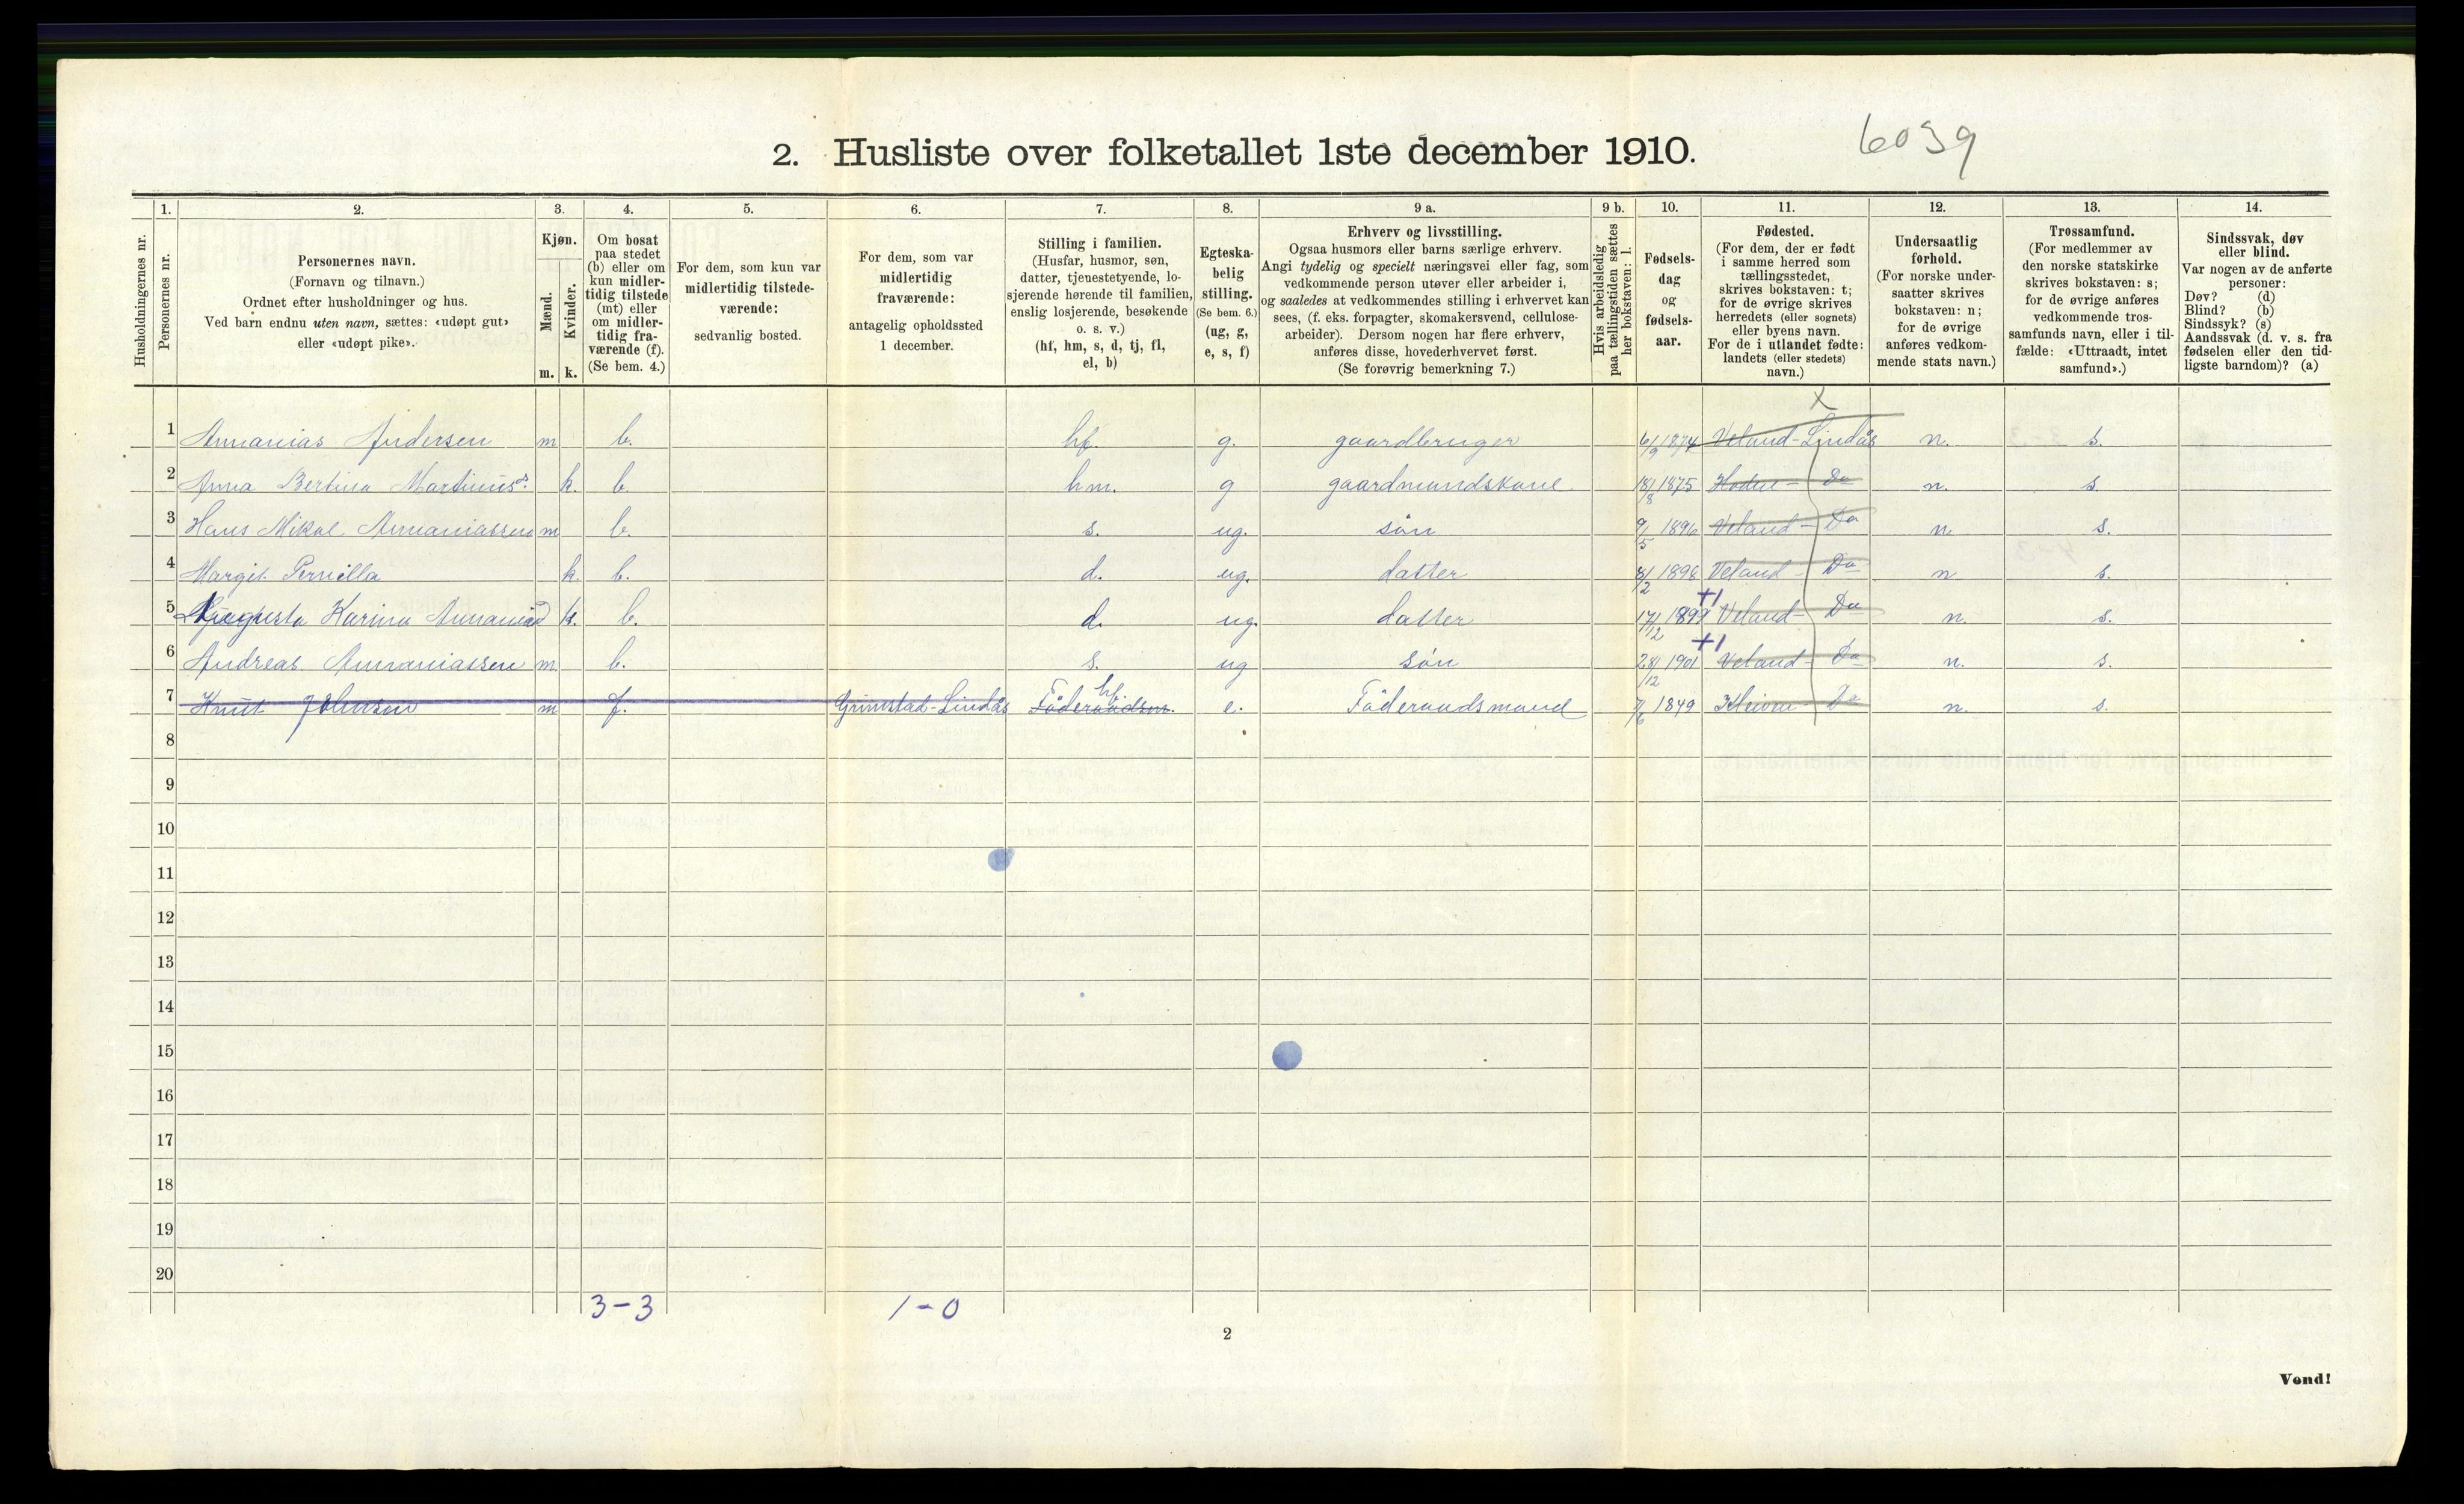 2. Husliste over folketallet 1ste december 1910.
6039
Husholdningernes nr.
1. Personernes nr.
2. Personernes navn.
(Fornavn og tilnavn.)
Ordnet efter husholdninger og hus.
Ved barn endnu uten navn, sættes: «udøpt gut»
eller «udøpt pike».
3. Kjøn.
Mænd. m.
Kvinder. k.
4. Om bosat
paa stedet
(b) eller om
kun midler-
tidig tilstede
(mt) eller
om midler-
tidig fra-
værende (f).
(Se bem. 4.)
5. For dem, som kun var
midlertidig tilstede-
værende:
sedvanlig bosted.
6. For dem, som var
midlertidig
fraværende:
antagelig opholdssted
1 december.
7. Stilling i familien.
(Husfar, husmor, søn,
datter, tjenestetyende, lo-
sjerende hørende til familien,
enslig losjerende, besøkende
o. s. v.)
(hf, hm, s, d, tj, fl,
el, b)
8. Egteska-
belig
stilling.
(Se bem. 6.)
(ug, g,
e, s, f)
9 a. Erhverv og livsstilling.
Ogsaa husmors eller barns særlige erhverv.
Angi tydelig og specielt næringsvei eller fag, som
vedkommende person utøver eller arbeider i,
og saaledes at vedkommendes stilling i erhvervet kan
sees, (f. eks. forpagter, skomakersvend, cellulose-
arbeider). Dersom nogen har flere erhverv,
anføres disse, hovederhvervet først.
(Se forøvrig bemerkning 7.)
9 b. Hvis arbeidsledig
paa tællingstiden sættes
her bokstaven: l.
10. Fødsels-
dag
og
fødsels-
aar.
11. Fødested.
(For dem, der er født
i samme herred som
tællingsstedet,
skrives bokstaven: t;
for de øvrige skrives
herredets (eller sognets)
eller byens navn.
For de i utlandet fødte:
landets (eller stedets)
navn.)
12. Undersaatlig
forhold.
(For norske under-
saatter skrives
bokstaven: n;
for de øvrige
anføres vedkom-
mende stats navn.)
13. Trossamfund.
(For medlemmer av
den norske statskirke
skrives bokstaven: s;
for de øvrige anføres
vedkommende tros-
samfunds navn, eller i til-
fælde: «Uttraadt, intet
samfund».)
14. Sindssvak, døv
eller blind.
Var nogen av de anførte
personer:
Døv? (d)
Blind? (b)
Sindssyk? (s)
Aandssvak (d. v. s. fra
fødselen eller den tid-
ligste barndom)? (a)
X
1 Annanias Andersen m b. hf. g. gaardbruger 6/9 1874 Veland-Lindås n. s.
2 Anna Bertina Martinusd. k. b. hm. g gaardmandskone 18/8 1875 Do n. s.
3 Hans Mikal Annaniassen m b. s. ug. søn 9/5 1896 Veland - Do n s.
4 Margit Pernilla k. b. d. ug. datter 8/2 1898 Veland - Do n s.
5 Augusta Karina Annaniasd k. b. d. ug. datter 17/12 1899 +1 Veland - Do n. s.
6 Andreas Annaniassen m. b. s. ug søn 28/12 1901 +1 Veland - Do n. s.
7 Knut Johnsen m f. Grimstad-Lindås Föderaadsm. hf e. Föderaadsmand 7/6 1849 Do n. s.
8
9
10
11
12
13
14
15
16
17
18
19
20
3-3 1-0
2
Vend!